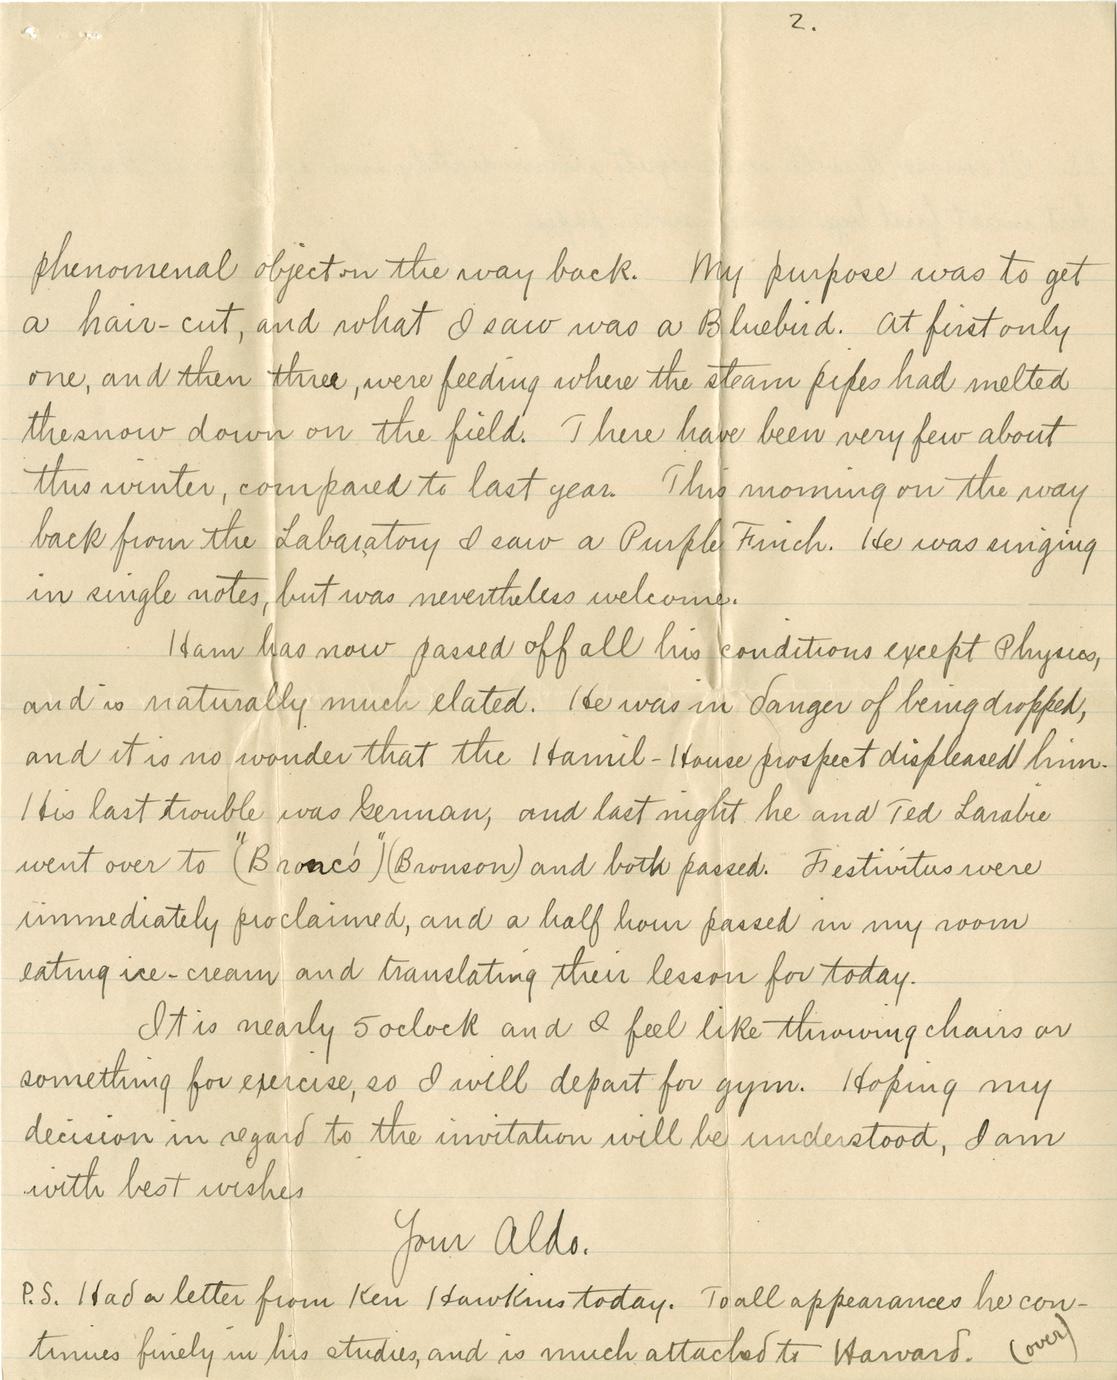 2.
phenomenal object on the way back. My purpose was to get
a hair-cut, and what I saw was a Bluebird. At first only
one, and then three, were feeding where the steam pipes had melted
the snow down on the field. There have been very few about
this winter, compared to last year. This morning on the way
back from the Labaratory I saw a Purple Finch. He was singing
in single notes, but was nevertheless welcome.
Ham has now passed off all his conditions except Physics,
and is naturally much elated. He was in danger of being dropped,
and it is no wonder that the Hamil-House prospect displeased him.
His last trouble was German, and last night he and Ted Larabie
went over to "(Bronc's") (Bronson) and both passed. Festivitus were
immediately proclaimed, and a half hour passed in my room
eating ice-cream and translating their lesson for today.
It is nearly 5 oclock and I feel like throwing chairs or
something for exercise, so I will depart for gym. Hoping my
decision in regard to the invitation will be understood, I am
with best wishes
Your Aldo.
P.S. Had a letter from Ken Hawkins today. To all appearances he con-
tinues finely in his studies, and is much attached to Harvard. (over)